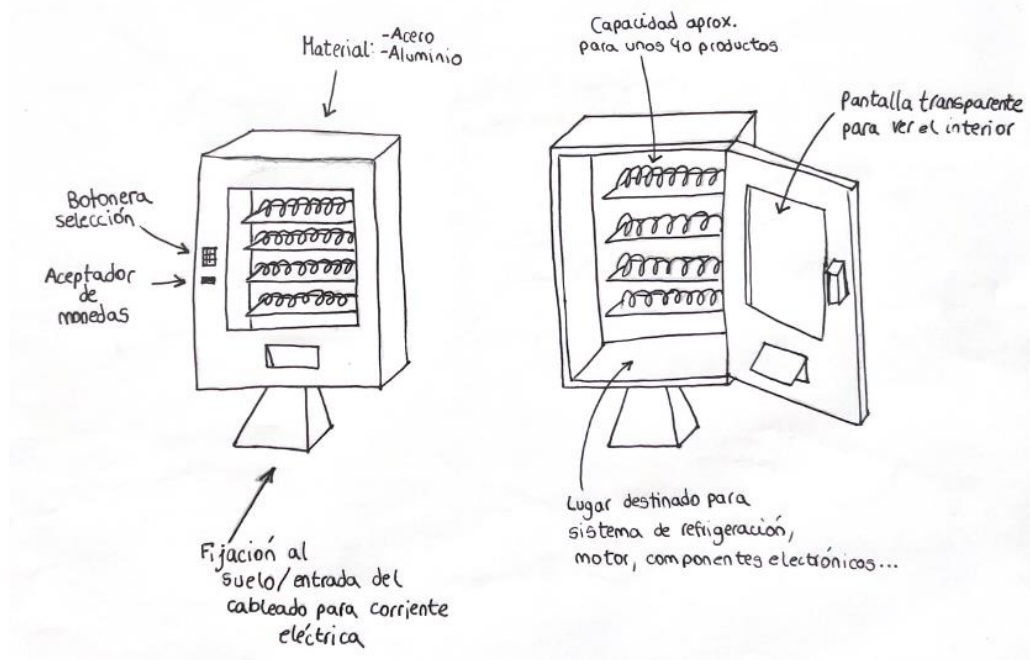 Material: -Acero
-Aluminio
Botonera
selección
Aceptador
de
monedas
Fijación al
suelo/entrada del
cableado para corriente
eléctrica
Capacidad aprox.
para unos 40 productos
Pantalla transparente
para ver el interior
Lugar destinado para
sistema de refrigeración,
motor, componentes electrónicos...